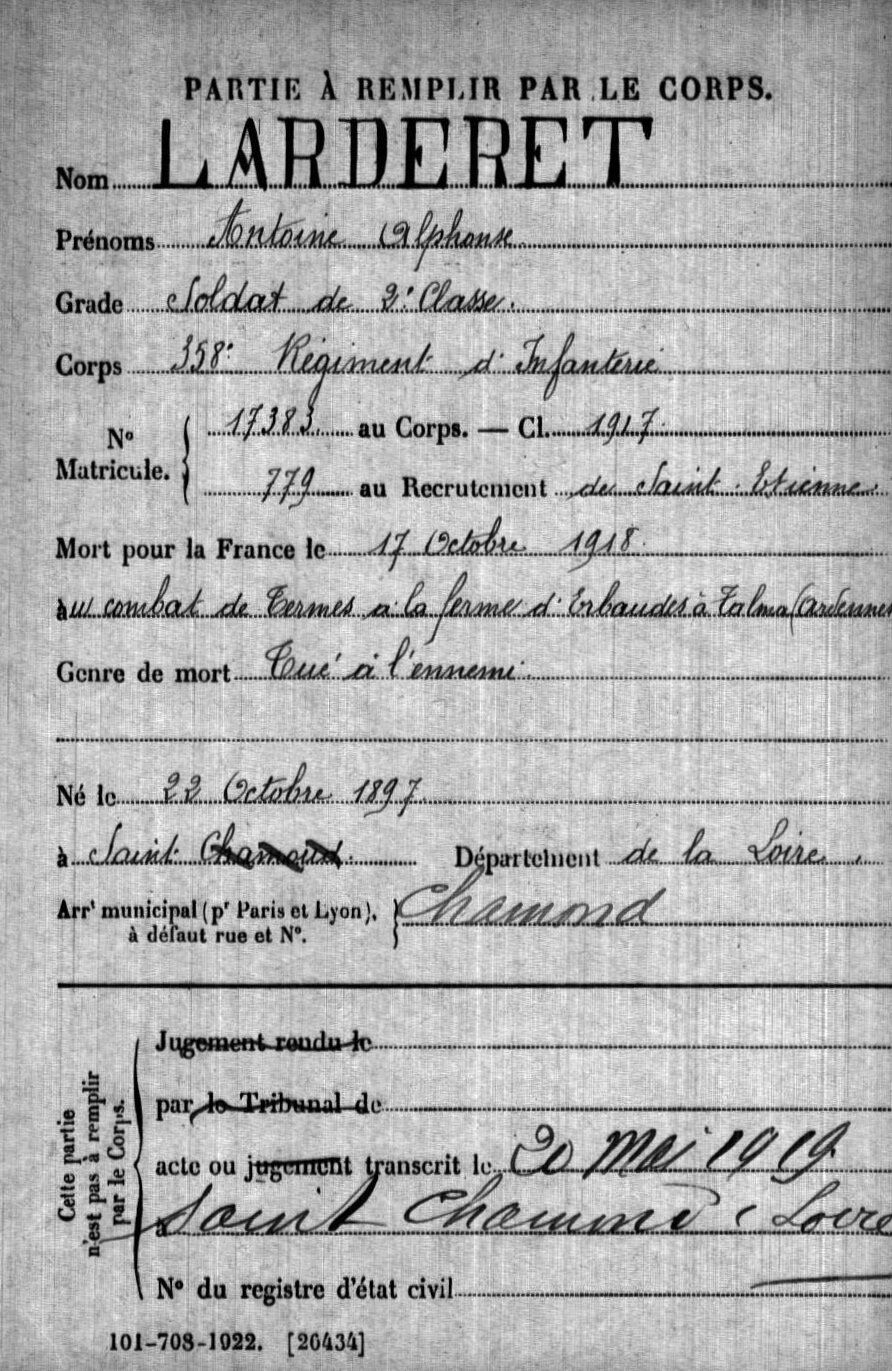 PARTIE À REMPLIR PAR LE CORPS.
Nom LARDERET
Prénoms Antoine Alphonse
Grade Soldat de 2e Classe.
Corps 358e Régiment d'Infanterie
No Matricule. { 17383 au Corps. — Cl. 1917
779 au Recrutement de Saint-Etienne
Mort pour la France le 17 Octobre 1918
au combat de Termes à la ferme d'Erbaudes à Talma (Ardennes
Genre de mort Tué à l'ennemi
Né le 22 Octobre 1897
à Saint Chamond Département de la Loire
Arrt municipal (pr Paris et Lyon), à défaut rue et No. } Chamond
Cette partie n'est pas à remplir par le Corps.
Jugement rendu le
par le Tribunal de
acte ou jugement transcrit le 20 Mai 1919
à Saint Chamond (Loire
No du registre d'état civil
101-708-1922. [26434]